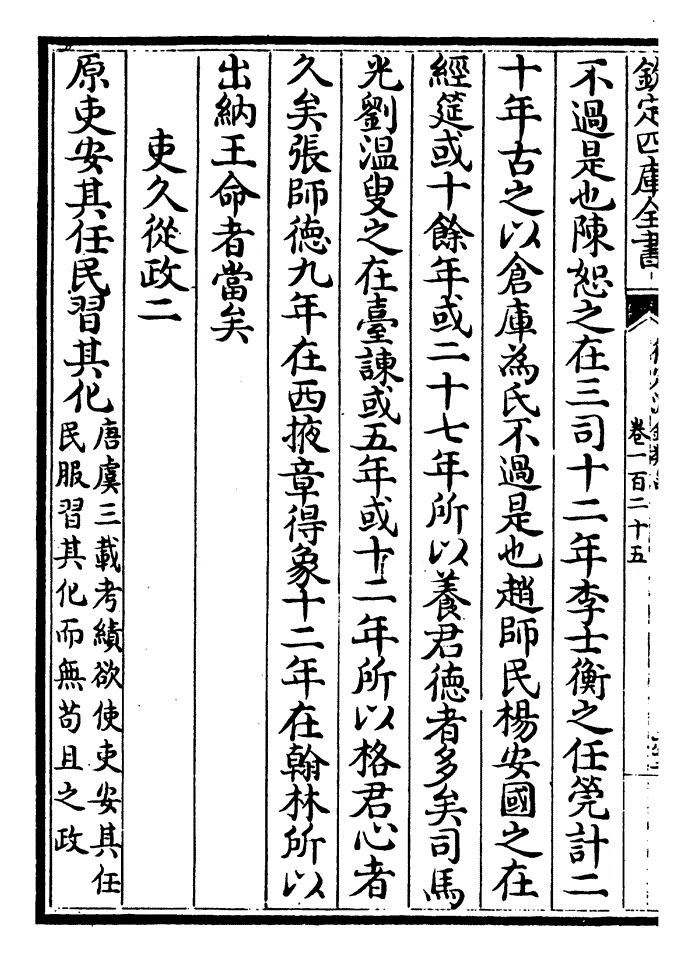 欽定四庫全書
卷一百二十五
不過是也陳恕之在三司十二年李士衡之任筦計二
十年古之以倉庫為氏不過是也趙師民楊安國之在
經筵或十餘年或二十七年所以養君德者多矣司馬
光劉温叟之在臺諫或五年或十二年所以格君心者
久矣張師德九年在西掖章得象十二年在翰林所以
出納王命者當矣
吏久從政二
原吏安其任民習其化
唐虞三載考績欲使吏安其任
民服習其化而無苟且之政